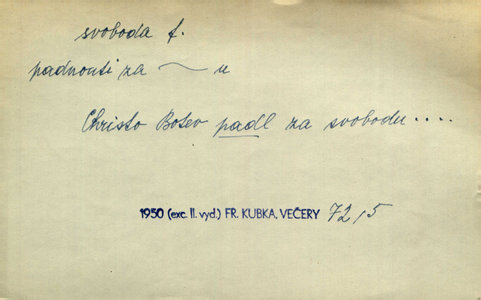 svoboda f.
padnouti za ~ u
Christo Botev padl za svobodu ....
1950 (exc. II. vyd.) FR. KUBKA, VEČERY 72/5